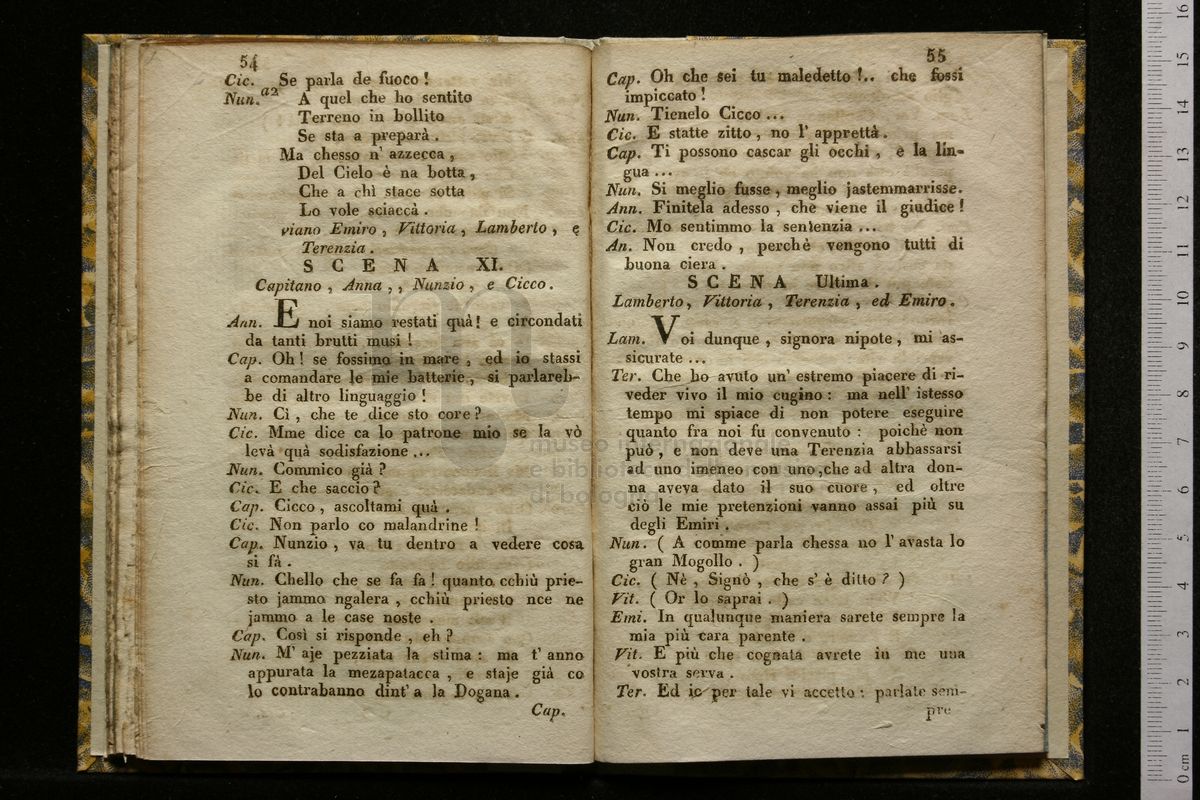 54
Cic. Se parla de fuoco !
Nun.a2 A quel che ho sentito
Terreno in bollito
Se sta a preparà .
Ma chesso n' azzecca ,
Del Cielo è na botta ,
Che a chì stace sotta
Lo vole sciaccà .
viano Emiro , Vittoria , Lamberto , e
Terenzia .
SCENA XI.
Capitano , Anna , , Nunzio , e Cicco .
Ann. E noi siamo restati quà! e circondati
da tanti brutti musi !
Cap. Oh ! se fossimo in mare , ed io stassi
a comandare le mie batterie , si parlareb-
be di altro linguaggio !
Nun. Cì , che te dice sto core ?
Cic. Mme dice ca lo patrone mio se la vò
levà quà sodisfazione ...
Nun. Commico già ?
Cic. E che saccio ?
Cap. Cicco , ascoltami quà .
Cic. Non parlo co malandrine !
Cap. Nunzio , va tu dentro a vedere cosa
si fà .
Nun. Chello che se fa fa ! quanto cchiù prie-
sto jammo ngalera , cchiù priesto nce ne
jammo a le case noste .
Cap. Così si risponde , eh ?
Nun. M' aje pezziata la stima : ma t' anno
appurata la mezapatacca , e staje già co
lo contrabanno dint' a la Dogana .
Cap.
55
Cap. Oh che sei tu maledetto !.. che fossi
impiccato !
Nun. Tienelo Cicco ...
Cic. E statte zitto , no l' apprettà .
Cap. Ti possono cascar gli occhi , e la lin-
gua ...
Nun. Si meglio fusse , meglio jastemmarrisse.
Ann. Finitela adesso , che viene il giudice !
Cic. Mo sentimmo la sentenzia ...
An. Non credo , perchè vengono tutti di
buona ciera .
SCENA Ultima .
Lamberto , Vittoria , Terenzia , ed Emiro .
Lam. Voi dunque , signora nipote , mi as-
sicurate ...
Ter. Che ho avuto un' estremo piacere di ri-
veder vivo il mio cugino : ma nell' istesso
tempo mi spiace di non potere eseguire
quanto fra noi fu convenuto : poichè non
può , e non deve una Terenzia abbassarsi
ad uno imeneo con uno ,che ad altra don-
na aveva dato il suo cuore , ed oltre
ciò le mie pretenzioni vanno assai più su
degli Emiri .
Nun. ( A comme parla chessa no l' avasta lo
gran Mogollo . )
Cic. ( Nè , Signò , che s' è ditto ? )
Vit. ( Or lo saprai . )
Emi. In qualunque maniera sarete sempre la
mia più cara parente .
Vit. E più che cognata avrete in me una
vostra serva .
Ter. Ed io per tale vi accetto : parlate sem-
pre
museo internazionale
e biblioteca
di bologna